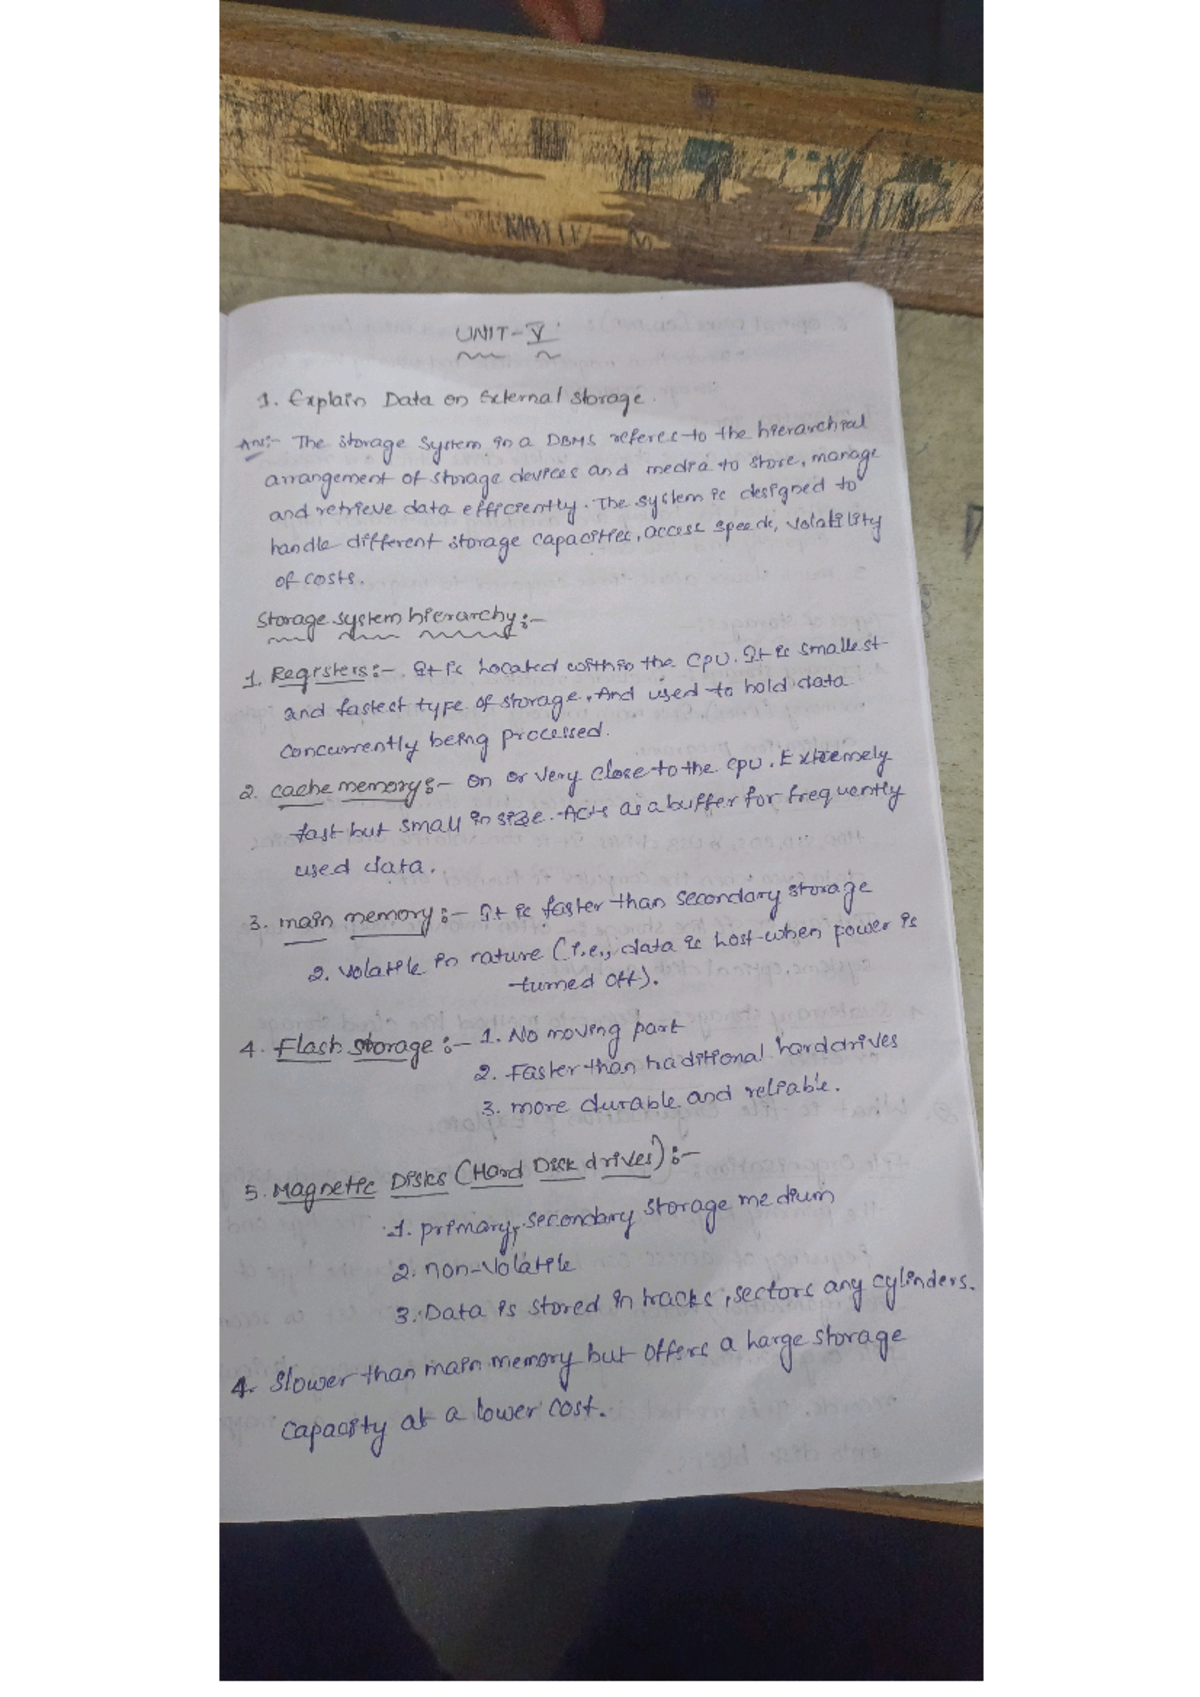 UNIT-V
1. Explain Data on External Storage.
Ans:- The storage system in a DBMS referes to the hierarchial
arrangement of storage devices and media to store, manage
and retrieve data efficiently. The system is designed to
handle different storage capacities, access speeds, volatility
of costs.
Storage system hierarchy:-
1. Registers:- It is located within the CPU. It is smallest
and fastest type of storage. And used to hold data
concurrently being processed.
2. cache memory:- on or very close to the cpu. Extremely
fast but small in size. Acts as a buffer for frequently
used data.
3. main memory:- It is faster than secondary storage
2. volatile in nature (i.e., data is lost when power is
turned off).
4. Flash storage:- 1. No moving part
2. Faster than traditional hard drives
3. more durable and reliable.
5. Magnetic Disks (Hard Disk drives):-
1. primary, secondary storage medium
2. non-volatile
3. Data is stored in tracks, sectors any cylinders.
4. Slower than main memory but offers a large storage
capacity at a lower cost.